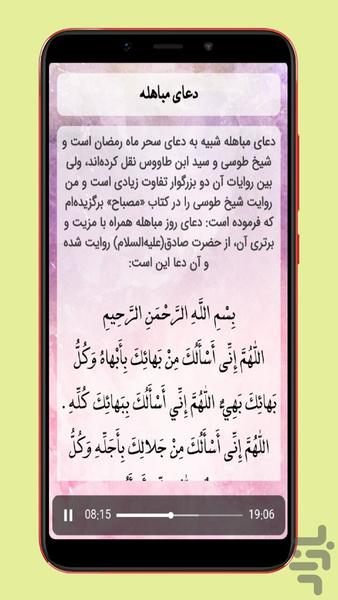 دعای مباهله
دعای مباهله شبیه به دعای سحر ماه رمضان است و
شیخ طوسی و سید ابن طاووس نقل کرده‌اند، ولی
بین روایات آن دو بزرگوار تفاوت زیادی است و من
روایت شیخ طوسی را در کتاب «مصباح» برگزیده‌ام
که فرموده است: دعای روز مباهله همراه با مزیت و
برتری آن، از حضرت صادق(علیه‌السلام) روایت شده
و آن دعا این است:
بِسْمِ اللَّهِ الرَّحْمَنِ الرَّحِيمِ
اللَّهُمَّ إِنِّى أَسْأَلُكَ مِنْ بَهائِكَ بِأَبْهاهُ وَكُلُّ
بَهائِكَ بَهِيٌّ اللَّهُمَّ إِنِّي أَسْأَلُكَ بِبَهائِكَ كُلِّهِ .
اللَّهُمَّ إِنِّى أَسْأَلُكَ مِنْ جَلالِكَ بِأَجَلِّهِ وَكُلُّ
08:15 19:06
بازار